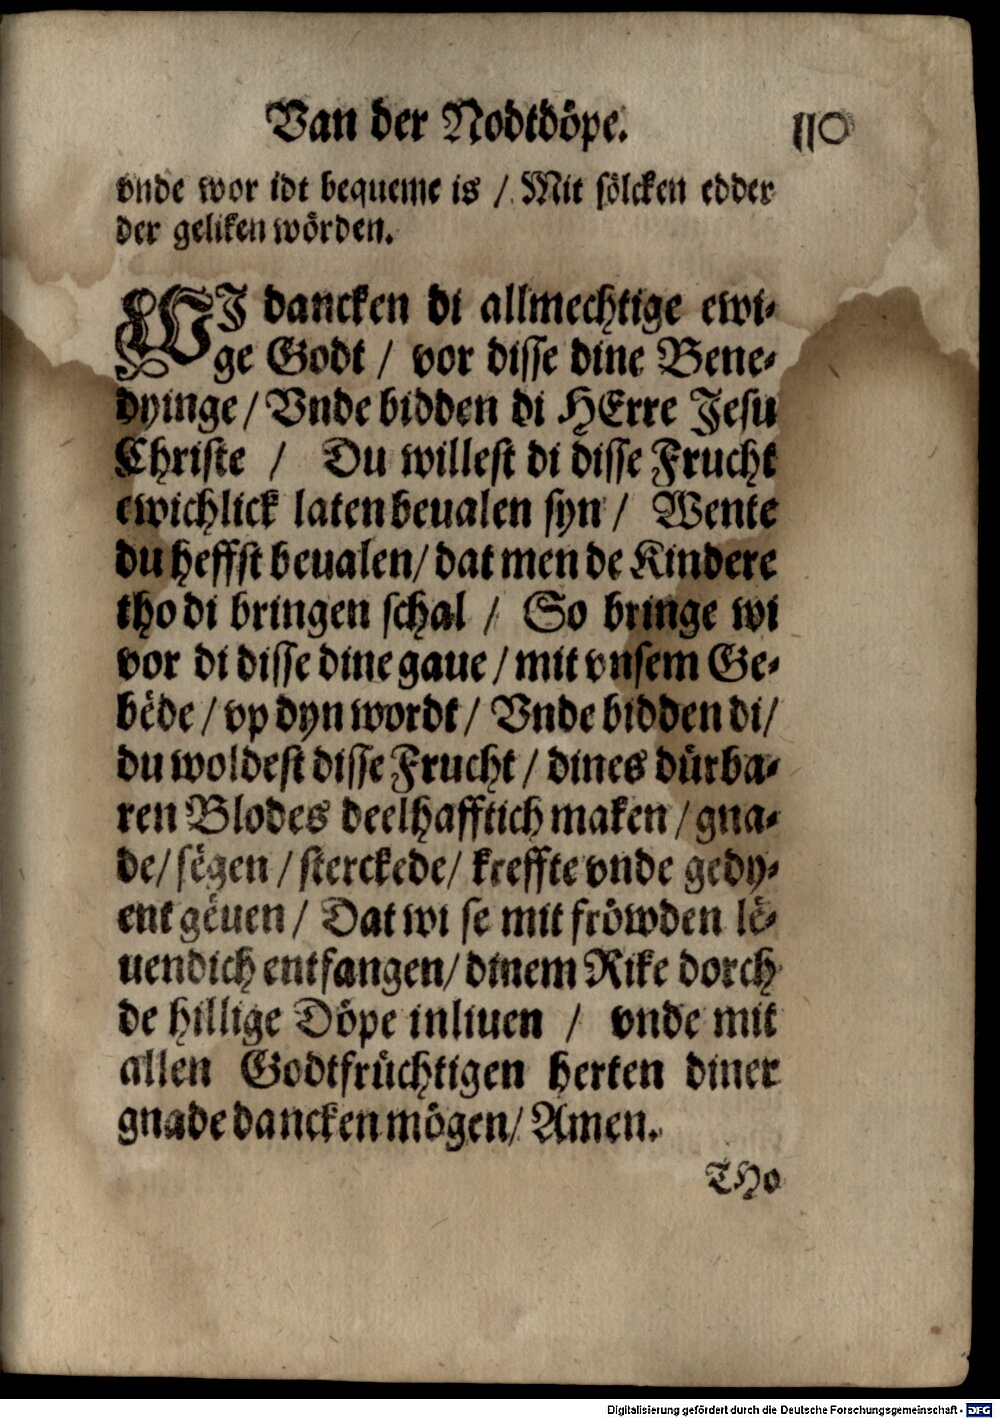 Van der Nodtdöpe. 110
vnde wor idt bequeme is / Mit sölcken edder
der geliken wörden.
WJ dancken di allmechtige ewi-
ge Godt / vor disse dine Bene-
dyinge / Vnde bidden di HErre Jesu
Christe / Du willest di disse Frucht
ewichlick laten beualen syn / Wente
du heffst beualen / dat men de Kindere
tho di bringen schal / So bringe wi
vor di disse dine gaue / mit vnsem Ge-
bëde / vp dyn wordt / Vnde bidden di /
du woldest disse Frucht / dines dürba-
ren Blodes deelhafftich maken / gna-
de / sëgen / sterckede / kreffte vnde gedy-
ent gëuen / Dat wi se mit fröwden lë-
uendich entfangen / dinem Rike dorch
de hillige Döpe inliuen / vnde mit
allen Godtfrüchtigen herten diner
gnade dancken mögen / Amen.
THo
Digitalisierung gefördert durch die Deutsche Forschungsgemeinschaft - DFG